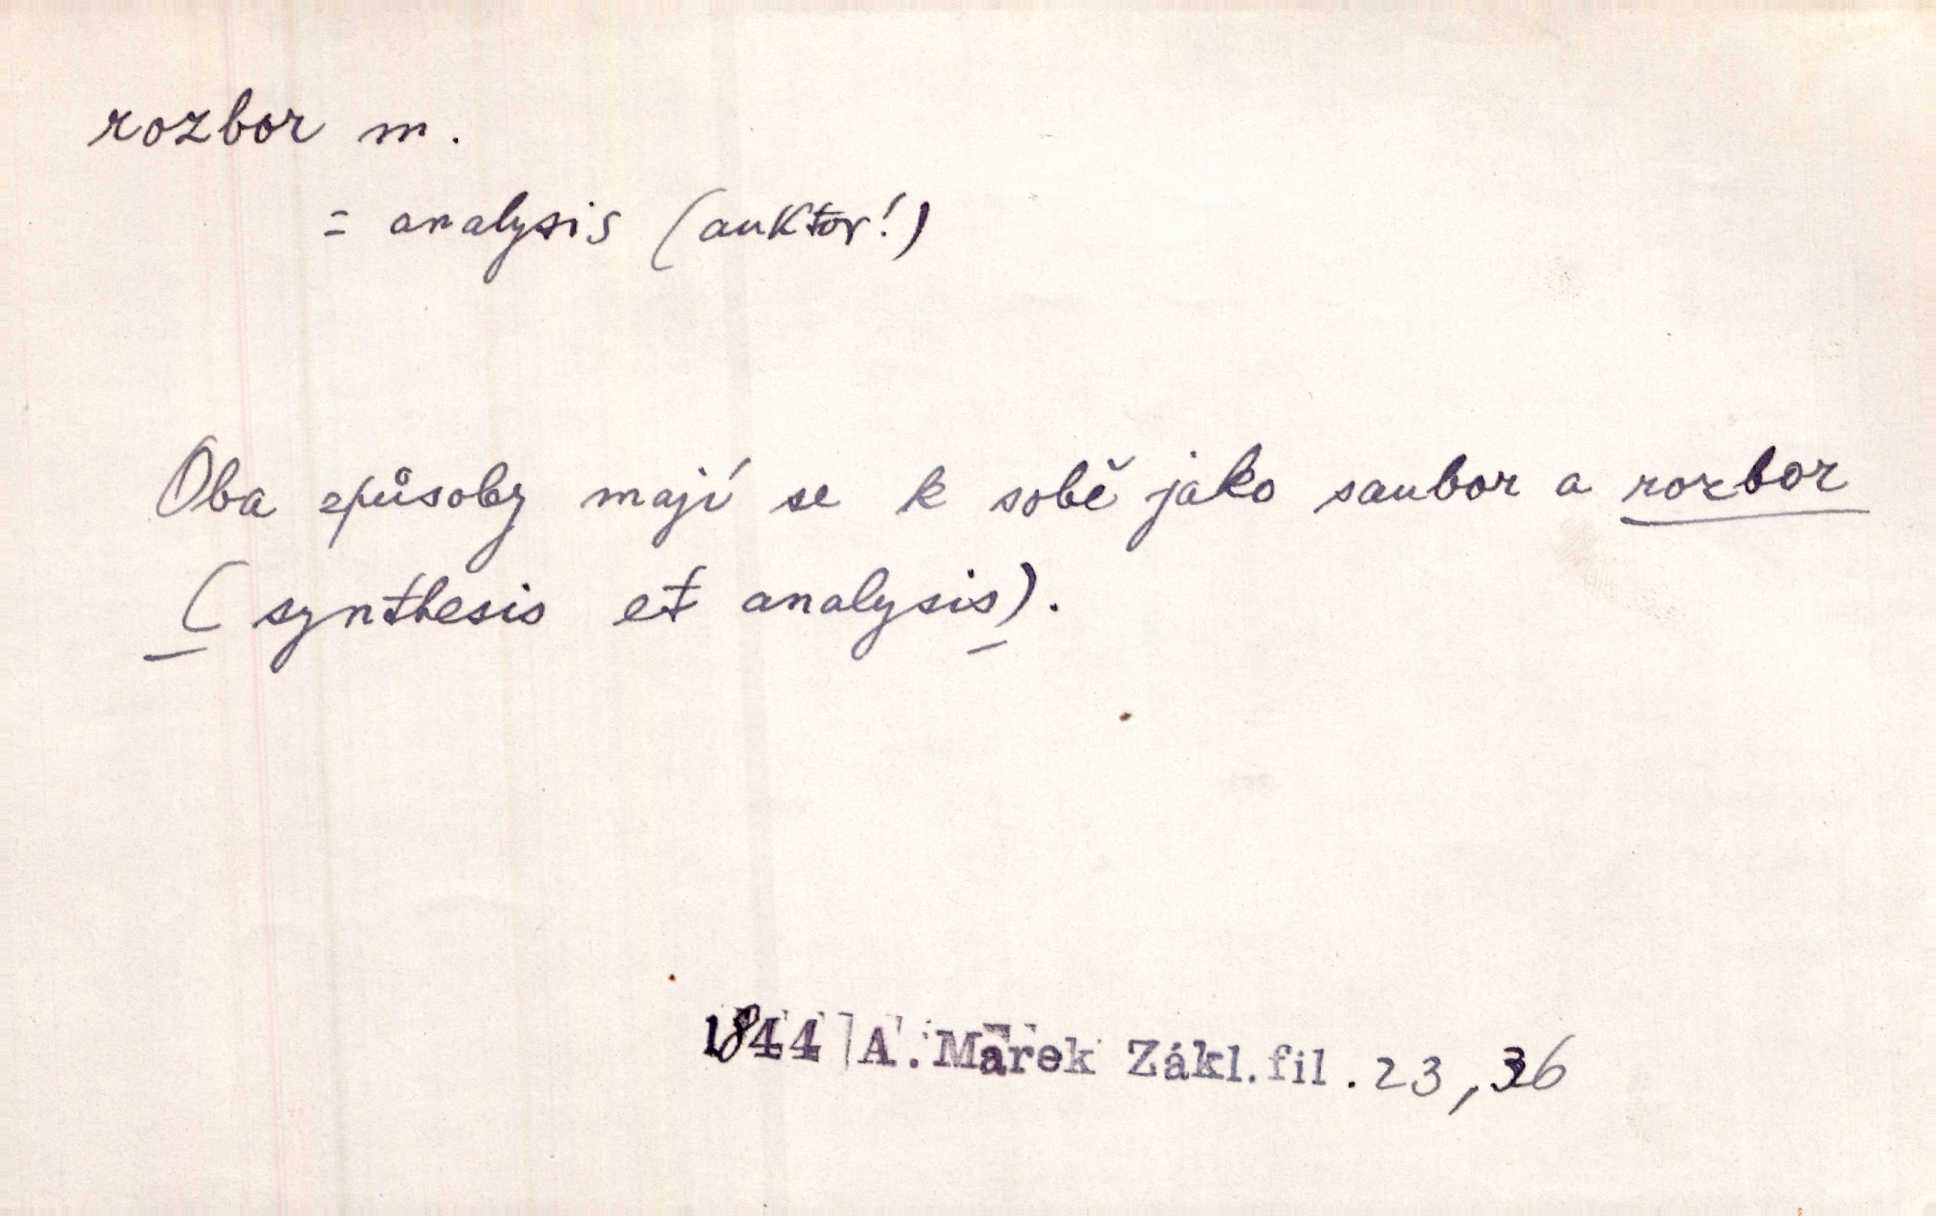 rozbor m.
= analysis (auktor!)
Oba způsoby mají se k sobě jako saubor a rozbor
(synthesis et analysis).
1844 A. Marek Zákl. fil. 23, 36